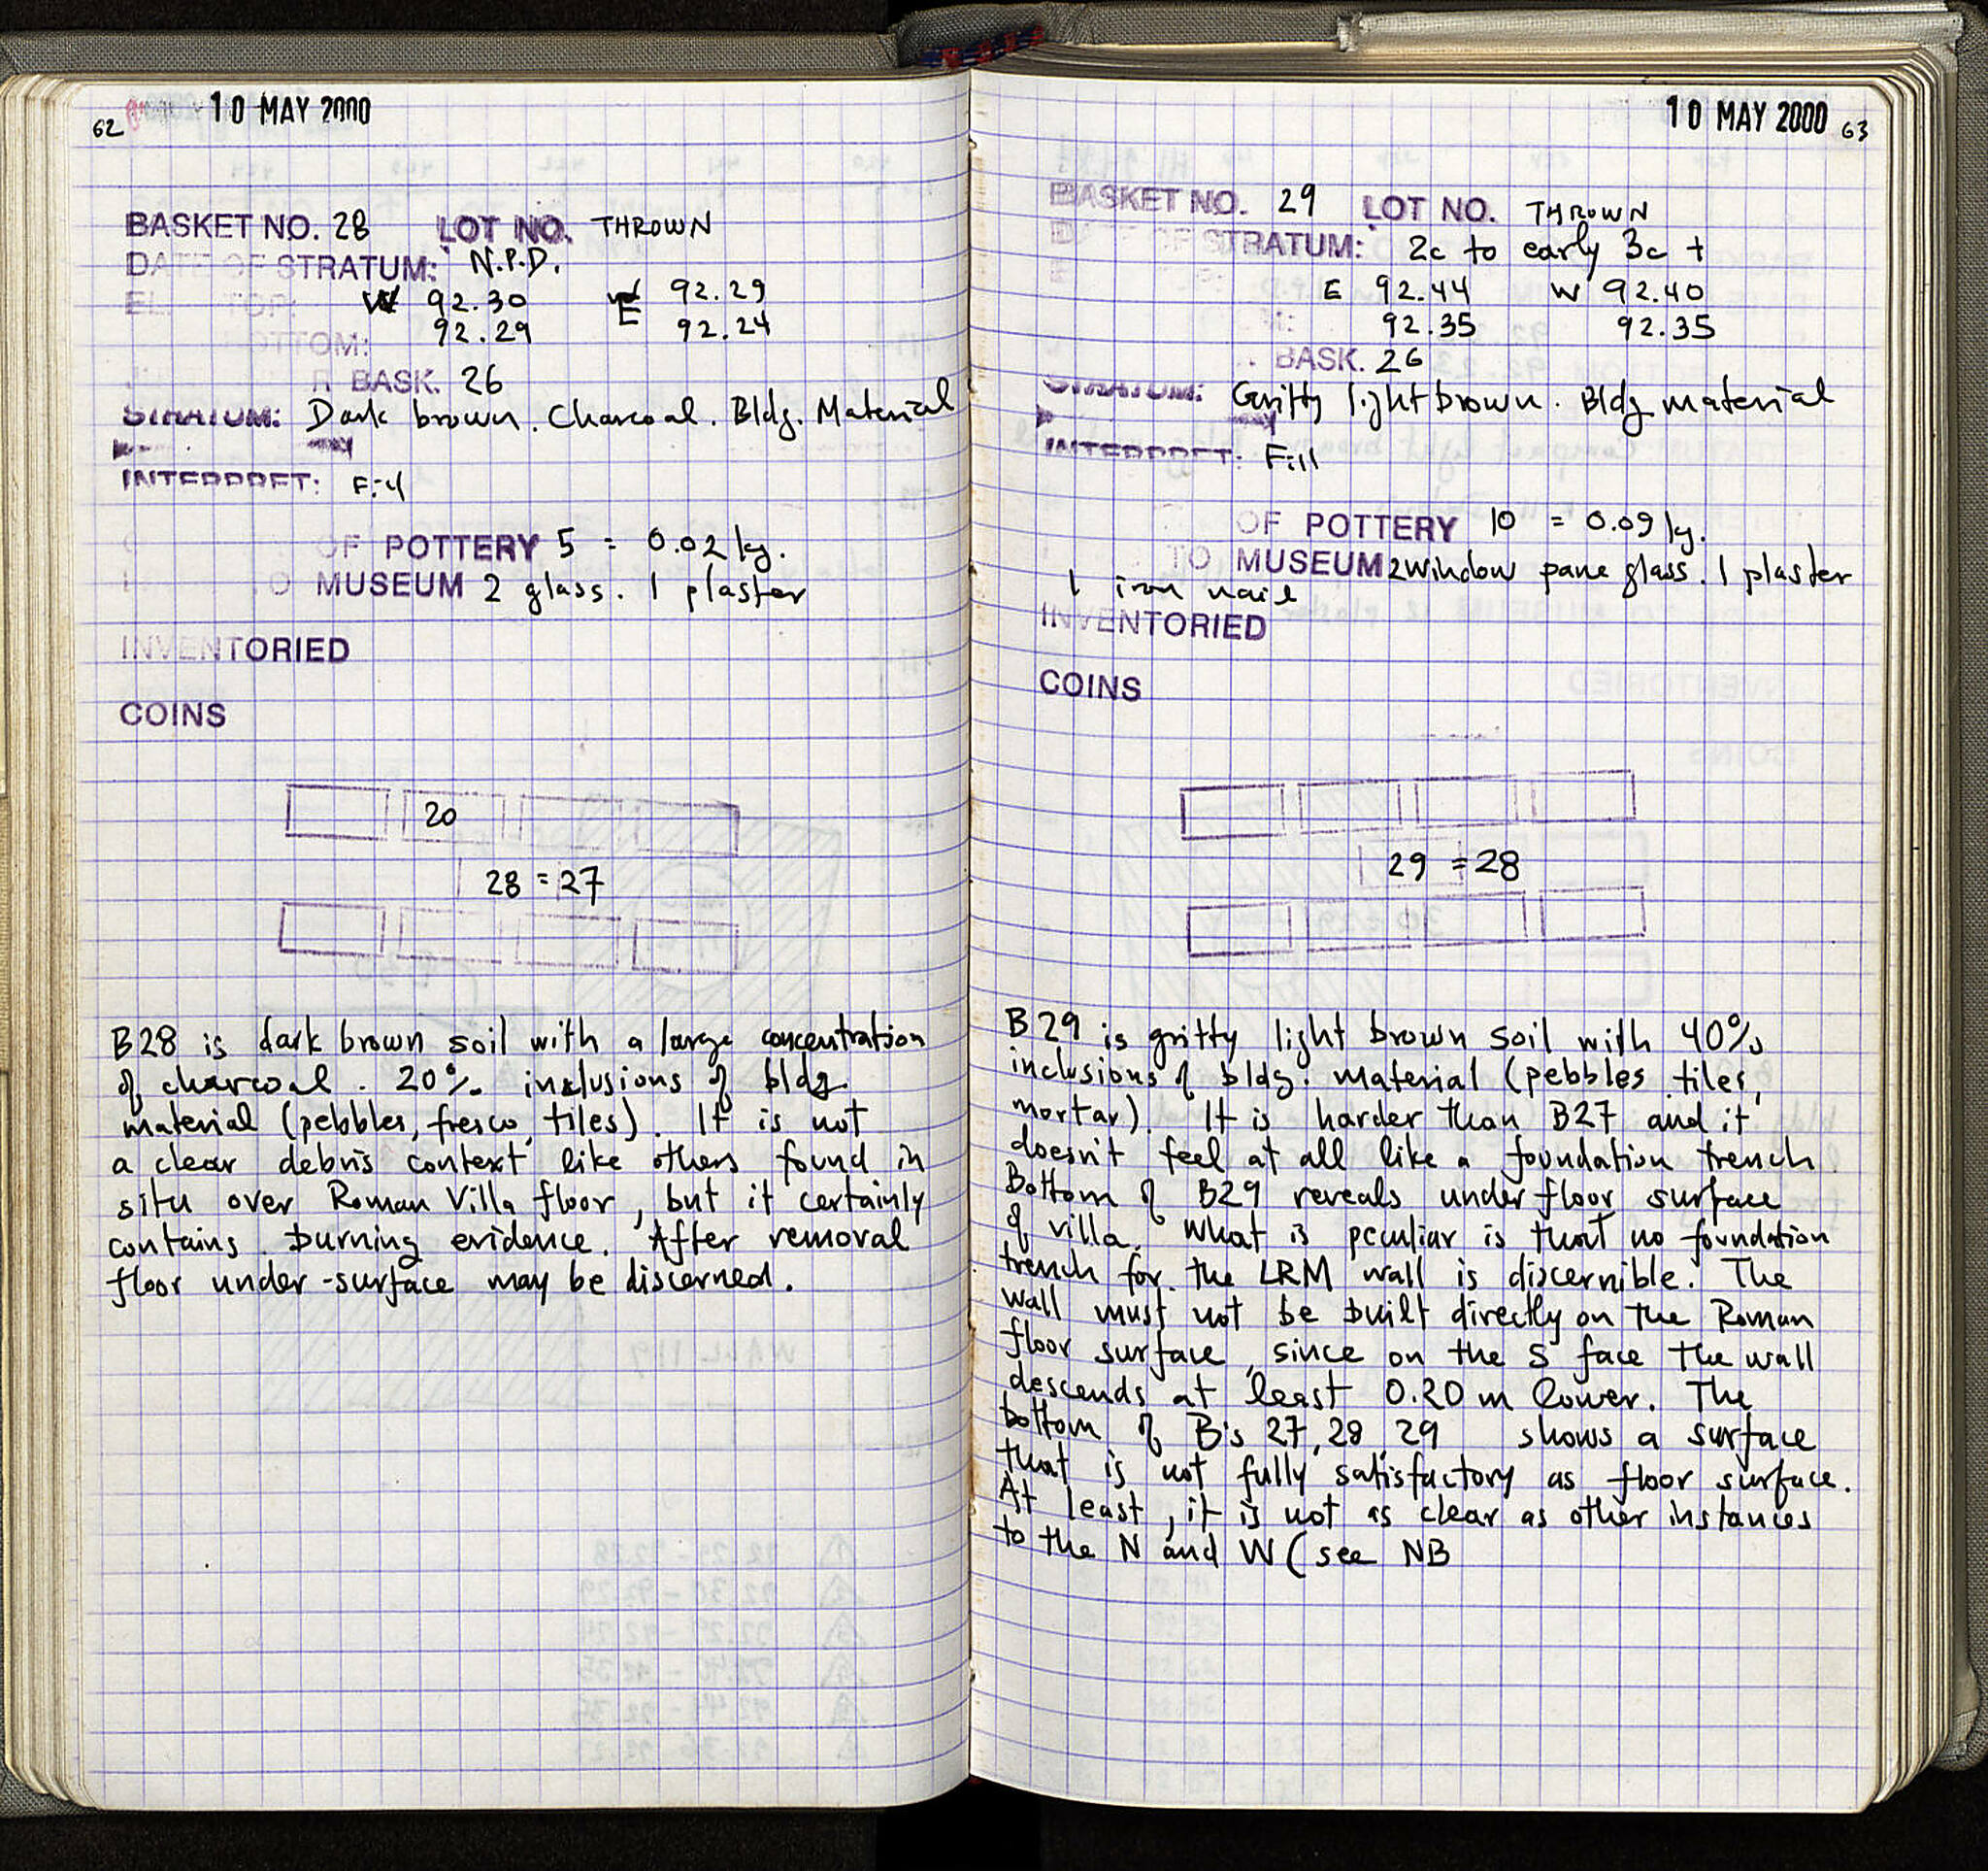 62
10 MAY 2000
BASKET NO. 28 LOT NO. THROWN
DATE OF STRATUM: N.P.D.
EL. TOP: W 92.30 E 92.29
BOTTOM: 92.29 92.24
R BASK. 26
STRATUM: Dark brown. Charcoal. Bldg. Material
INTERPRET: Fill
OF POTTERY 5 = 0.02 kg.
TO MUSEUM 2 glass. 1 plaster
INVENTORIED
COINS
20
28 = 27
B28 is dark brown soil with a large concentration
of charcoal. 20% inclusions of bldg.
material (pebbles, fresco, tiles). It is not
a clear debris context like others found in
situ over Roman Villa floor, but it certainly
contains burning evidence. After removal
floor under-surface may be discerned.
10 MAY 2000
63
BASKET NO. 29 LOT NO. THROWN
DATE OF STRATUM: 2c to early 3c +
E 92.44 W 92.40
92.35 92.35
BASK. 26
STRATUM: Gritty light brown. Bldg material
INTERPRET: Fill
OF POTTERY 10 = 0.09 kg.
TO MUSEUM 2 window pane glass. 1 plaster
1 iron nail
INVENTORIED
COINS
29 = 28
B29 is gritty light brown soil with 40%
inclusions of bldg. material (pebbles, tiles,
mortar). It is harder than B27 and it
doesn't feel at all like a foundation trench
Bottom of B29 reveals under floor surface
of villa. What is peculiar is that no foundation
trench for the LRM wall is discernible. The
wall must not be built directly on the Roman
floor surface, since on the S face the wall
descends at least 0.20 m lower. The
bottom of B's 27, 28, 29 shows a surface
that is not fully satisfactory as floor surface.
At least, it is not as clear as other instances
to the N and W (see NB